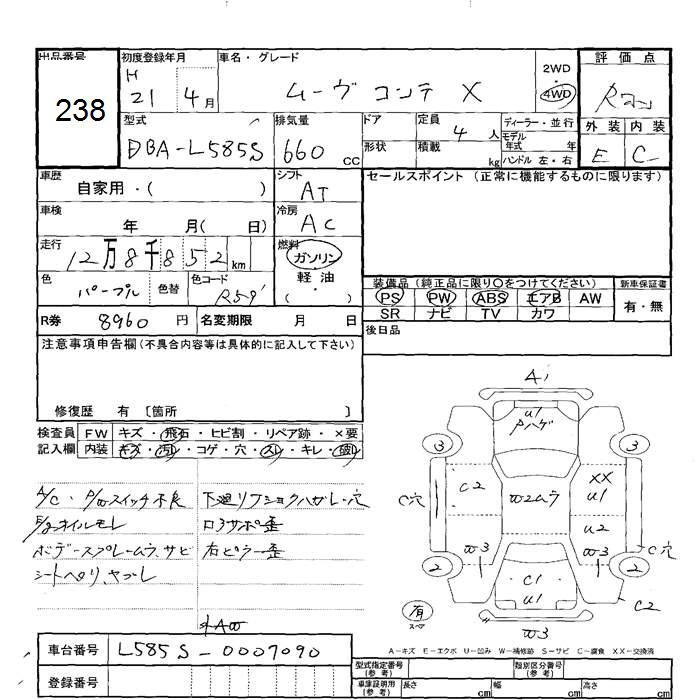 出品番号
238
初度登録年月
H 21 4月
車名・グレード
ムーヴ コンテ X
2WD
4WD
評価点
外装 内装
E C
型式
DBA-L585S
排気量
660 cc
ドア
形状
定員 4人
積載 kg
ディーラー・並行
モデル年式 年式
ハンドル 左・右
車歴
自家用・( )
シフト
AT
セールスポイント (正常に機能するものに限ります)
車検
年 月( 日)
冷房
AC
走行
12万8千852km
燃料
ガソリン
軽油
・( )
色
パープル
色替
色コード
装備品 (純正品に限り○をつけてください)
新車保証書
PS PW ABS エアB AW
有・無
SR ナビ TV カワ
R券 8960円
名変期限 月 日
後日品
注意事項申告欄(不具合内容等は具体的に記入して下さい)
修復歴 有 [箇所 ]
検査員 FW キズ・飛石・ヒビ割・リペア跡・×要
記入欄 内装 キズ・汚レ・コゲ・穴・スレ・キレ・破レ
A/C・P/Wスイッチ不良
E/gオイルモレ
ボデースプレームラ、サビ
シートヘタリ、ヤブレ
下廻リフショクハガレ・穴
ロ3サポ歪
右ピラー歪
A1
U1
Pハゲ
3
3
C2
C穴
W2ムラ
XX
U1
U2
W3
W3
C穴
2
2
C1
U1
C2
有
スペア
W3
A-キズ E-エクボ U-凹み W-補修跡 S-サビ C-腐食 XX-交換済
車台番号
L585S-0007090
登録番号
型式指定番号(参考)
類別区分番号(参考)
車庫証明用(参考)
長さ cm
幅 cm
高さ cm